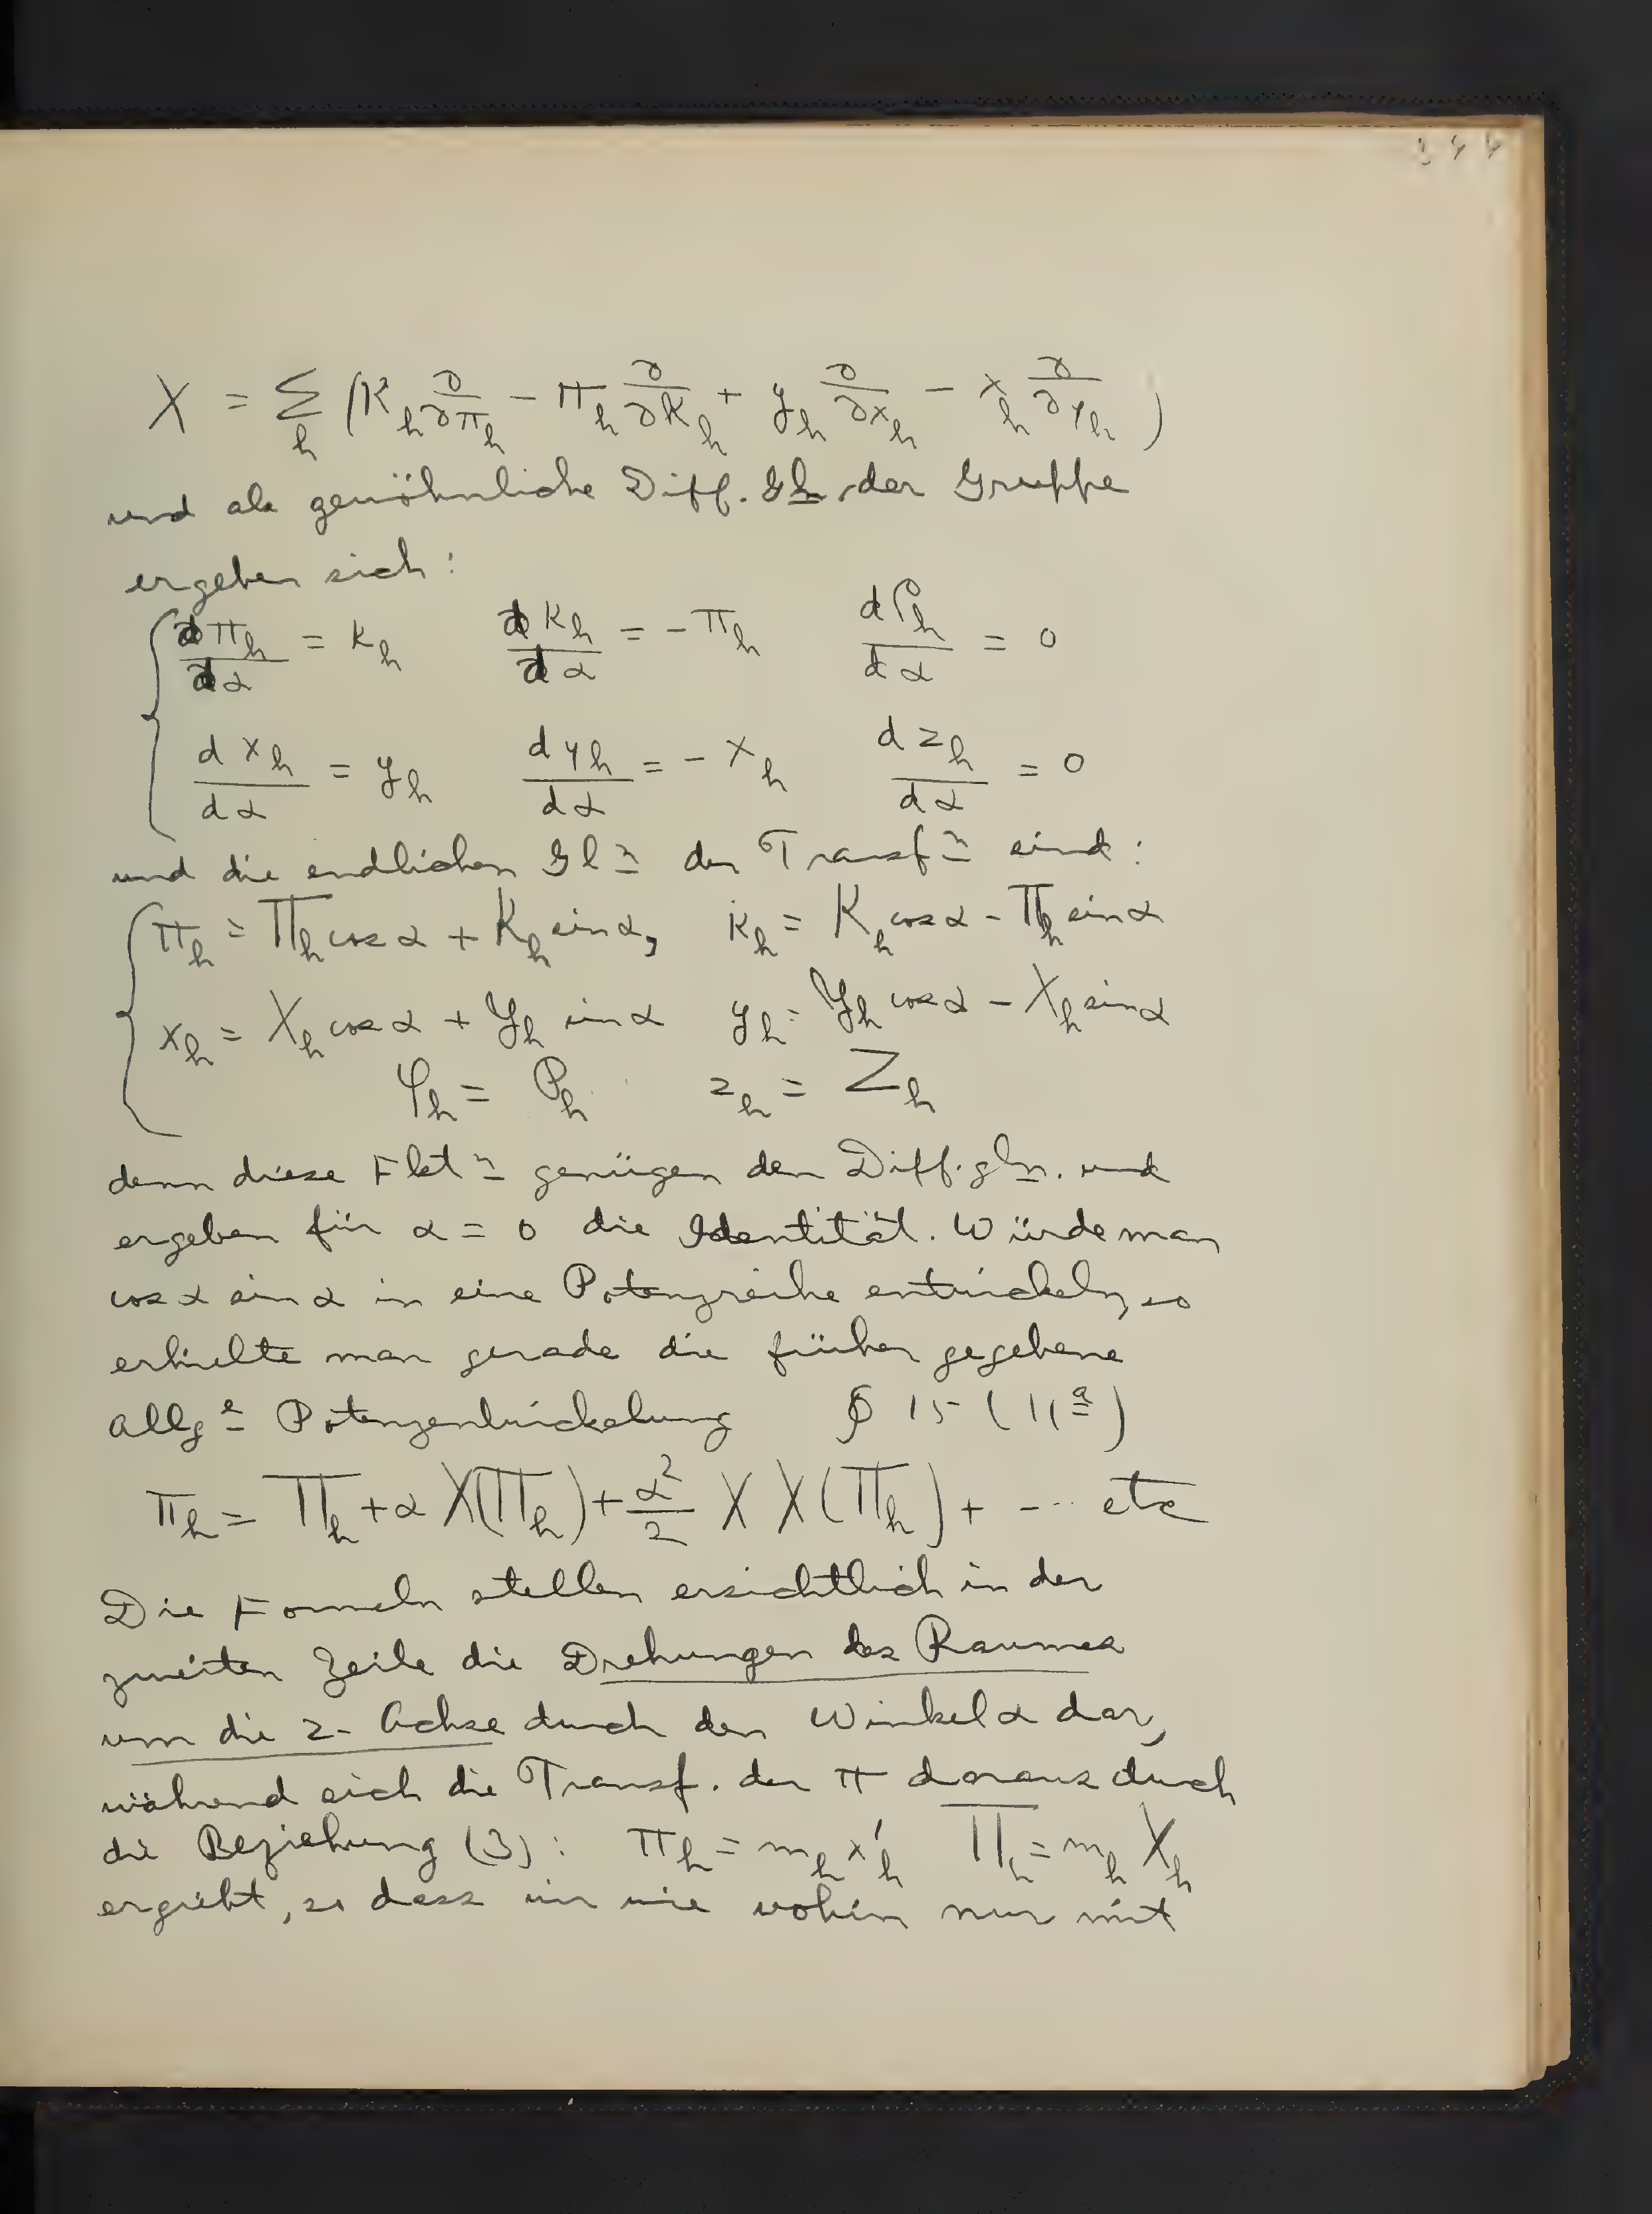 X = Σ_h (K_h ∂/∂π_h − π_h ∂/∂K_h + y_h ∂/∂x_h − x_h ∂/∂y_h )
und als gewöhnliche Diff. Gln. der Gruppe
ergeben sich:
dπ_h/dα = K_h   dK_h/dα = −π_h   dρ_h/dα = 0
dx_h/dα = y_h   dy_h/dα = −x_h   dz_h/dα = 0
und die endlichen Gln der Transfn sind:
π_h = Π_h cos α + K_h sin α,   κ_h = K_h cos α − Π_h sin α
x_h = X_h cos α + Y_h sin α   y_h = Y_h cos α − X_h sin α
φ_h = P_h   z_h = Z_h
denn diese Fktn genügen den Diff.gln. und
ergeben für α = 0 die Identität. Würde man
cos α sin α in eine Potenzreihe entwickeln, so
erhielte man gerade die früher gegebene
allge Potenzentwickelung   § 15 (11a)
π_h = Π_h + α X(Π_h) + α²/2 X X(Π_h) + -... etc
Die Formeln stellen ersichtlich in der
zweiten Zeile die Drehungen des Raumes
um die z-Achse durch den Winkel α dar,
während sich die Transf. der π daraus durch
die Beziehung (3): π_h = m_h x'_h   Π_h = m_h X_h
ergiebt, so dass wir wie vohin nur mit